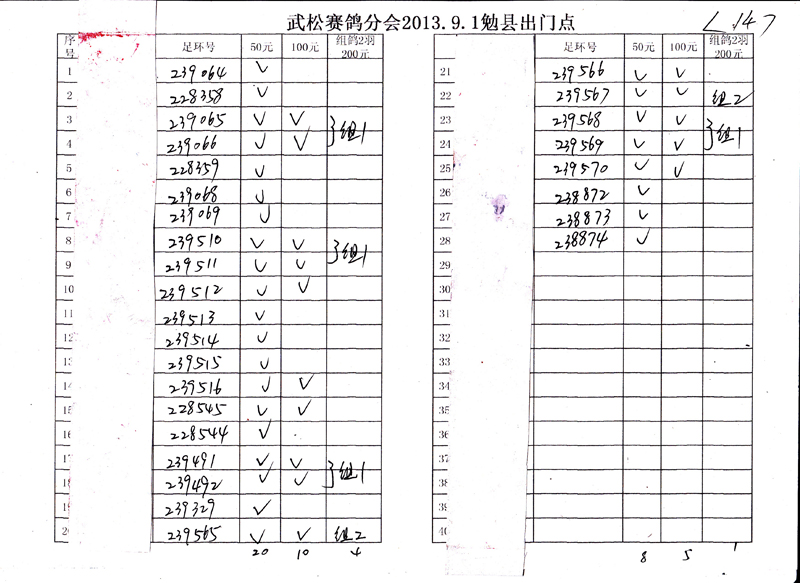 武松赛鸽分会2013.9.1勉县出门点
序号 足环号 50元 100元 组鸽2羽200元
1 239064 ✓
2 228358 ✓
3 239065 ✓ ✓
4 239066 ✓ ✓ }组1
5 228359 ✓
6 239068 ✓
7 239069 ✓
8 239510 ✓ ✓
9 239511 ✓ ✓ }组1
10 239512 ✓ ✓
11 239513 ✓
12 239514 ✓
13 239515 ✓
14 239516 ✓ ✓
15 228545 ✓ ✓
16 228544 ✓
17 239491 ✓ ✓
18 239492 ✓ ✓ }组1
19 239329 ✓
20 239565 ✓ ✓ 组2
20 10 4
足环号 50元 100元 组鸽2羽200元
21 239566 ✓ ✓
22 239567 ✓ ✓ 组2
23 239568 ✓ ✓
24 239569 ✓ ✓ }组1
25 239570 ✓ ✓
26 238872 ✓
27 238873 ✓
28 238874 ✓
29
30
31
32
33
34
35
36
37
38
39
40
8 5 1